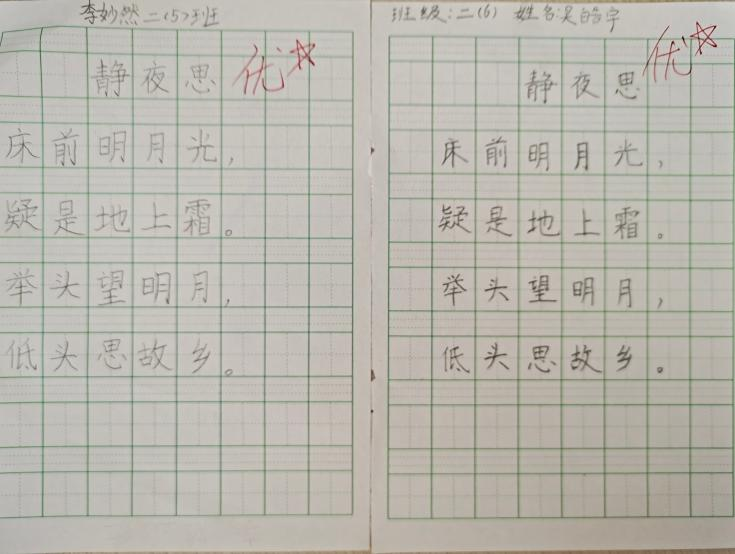 李妙然 二(5)班
静夜思 优
床前明月光，
疑是地上霜。
举头望明月，
低头思故乡。
班级：二(6) 姓名：吴皓宇
静夜思 优
床前明月光，
疑是地上霜。
举头望明月，
低头思故乡。